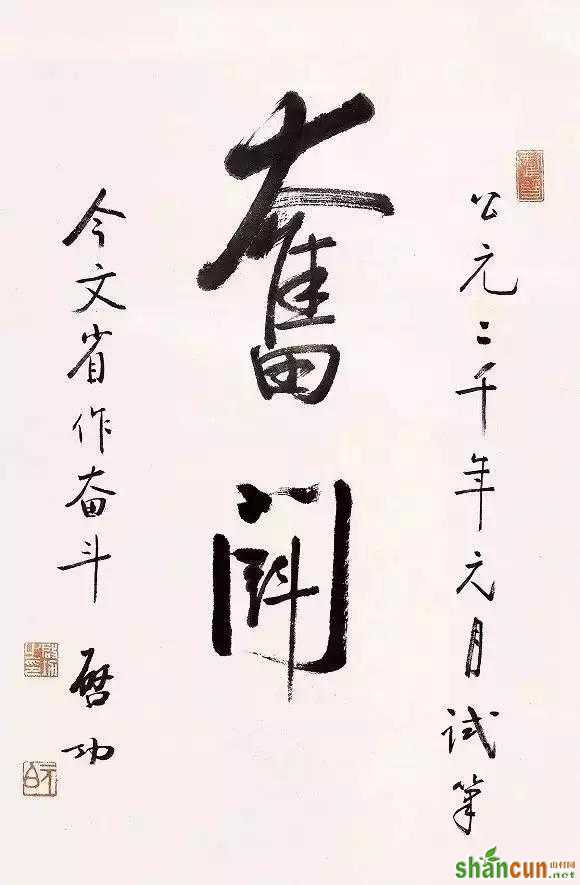 公元二千年元月试笔
奮鬪
今文省作奋斗
启功
shancun
山村网
.net